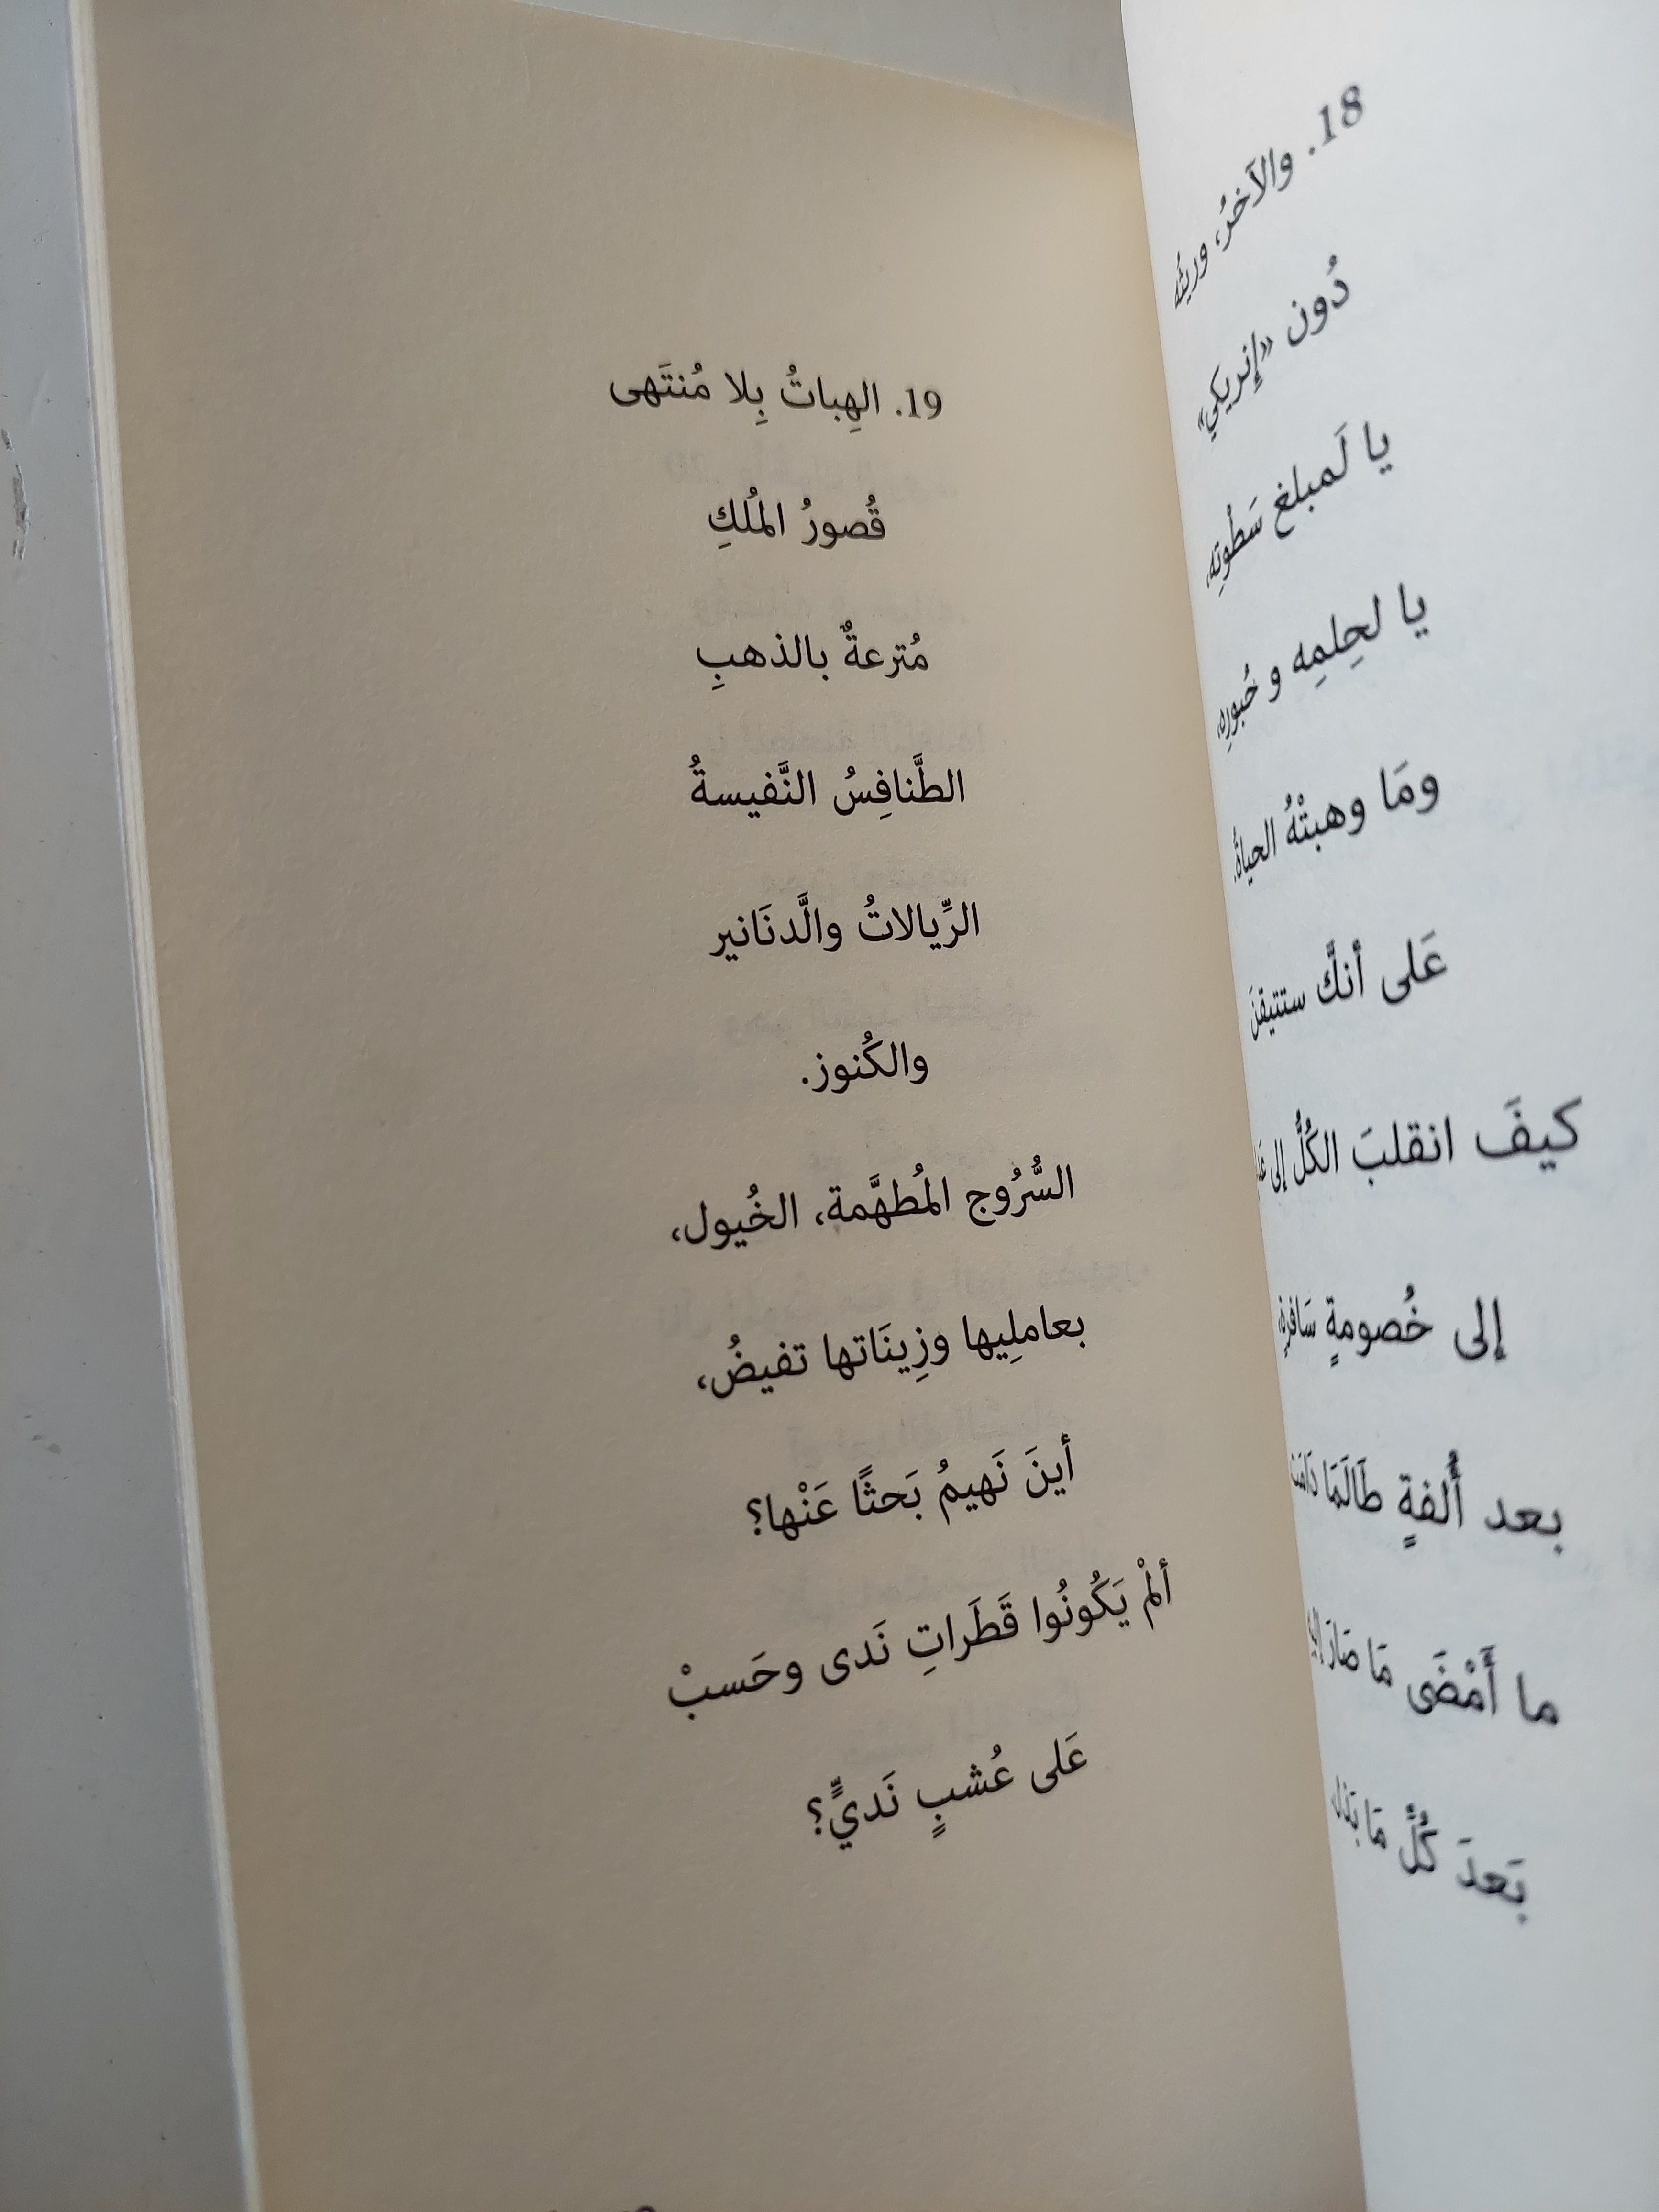 18. والآخرُ، وريثُه
دُون «إنريكي»
يا لَمبلغ سَطْوتِه،
يا لحِلمِه و حُبورِه،
ومَا وهبتْهُ الحياةُ،
عَلى أنكَّ ستتيقنَ
كيفَ انقلبَ الكُلُّ إلى
إلى خُصومةٍ سَافرةٍ،
بعد أُلفةٍ طَالَمَا دَامَت
ما أَمْضَى مَا صَارَ
بَعدَ كُلِّ مَا بَذل
19. الهِباتُ بِلا مُنتَهى
قُصورُ المُلكِ
مُترعةٌ بالذهبِ
الطَّنافِسُ النَّفيسةُ
الرِّيالاتُ والَّدنَانير
والكُنوز.
السُّرُوج المُطهَّمة، الخُيول،
بعامِليها وزِينَاتها تفيضُ،
أينَ نَهيمُ بَحثًا عَنْها؟
ألمْ يَكُونُوا قَطَراتِ نَدى وحَسبْ
عَلى عُشبٍ نَديٍّ؟